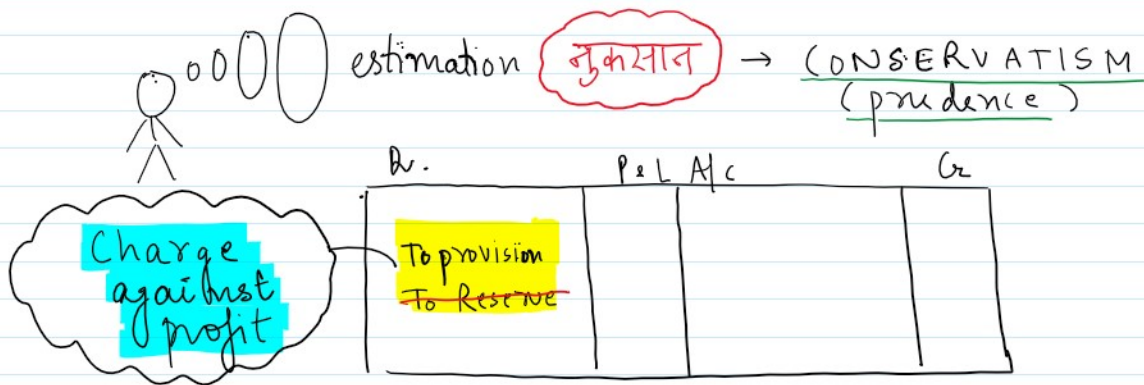 estimation नुकसान → CONSERVATISM
(prudence)
Dr. P & L A/c Cr
Charge
against
profit
To provision
To Reserve